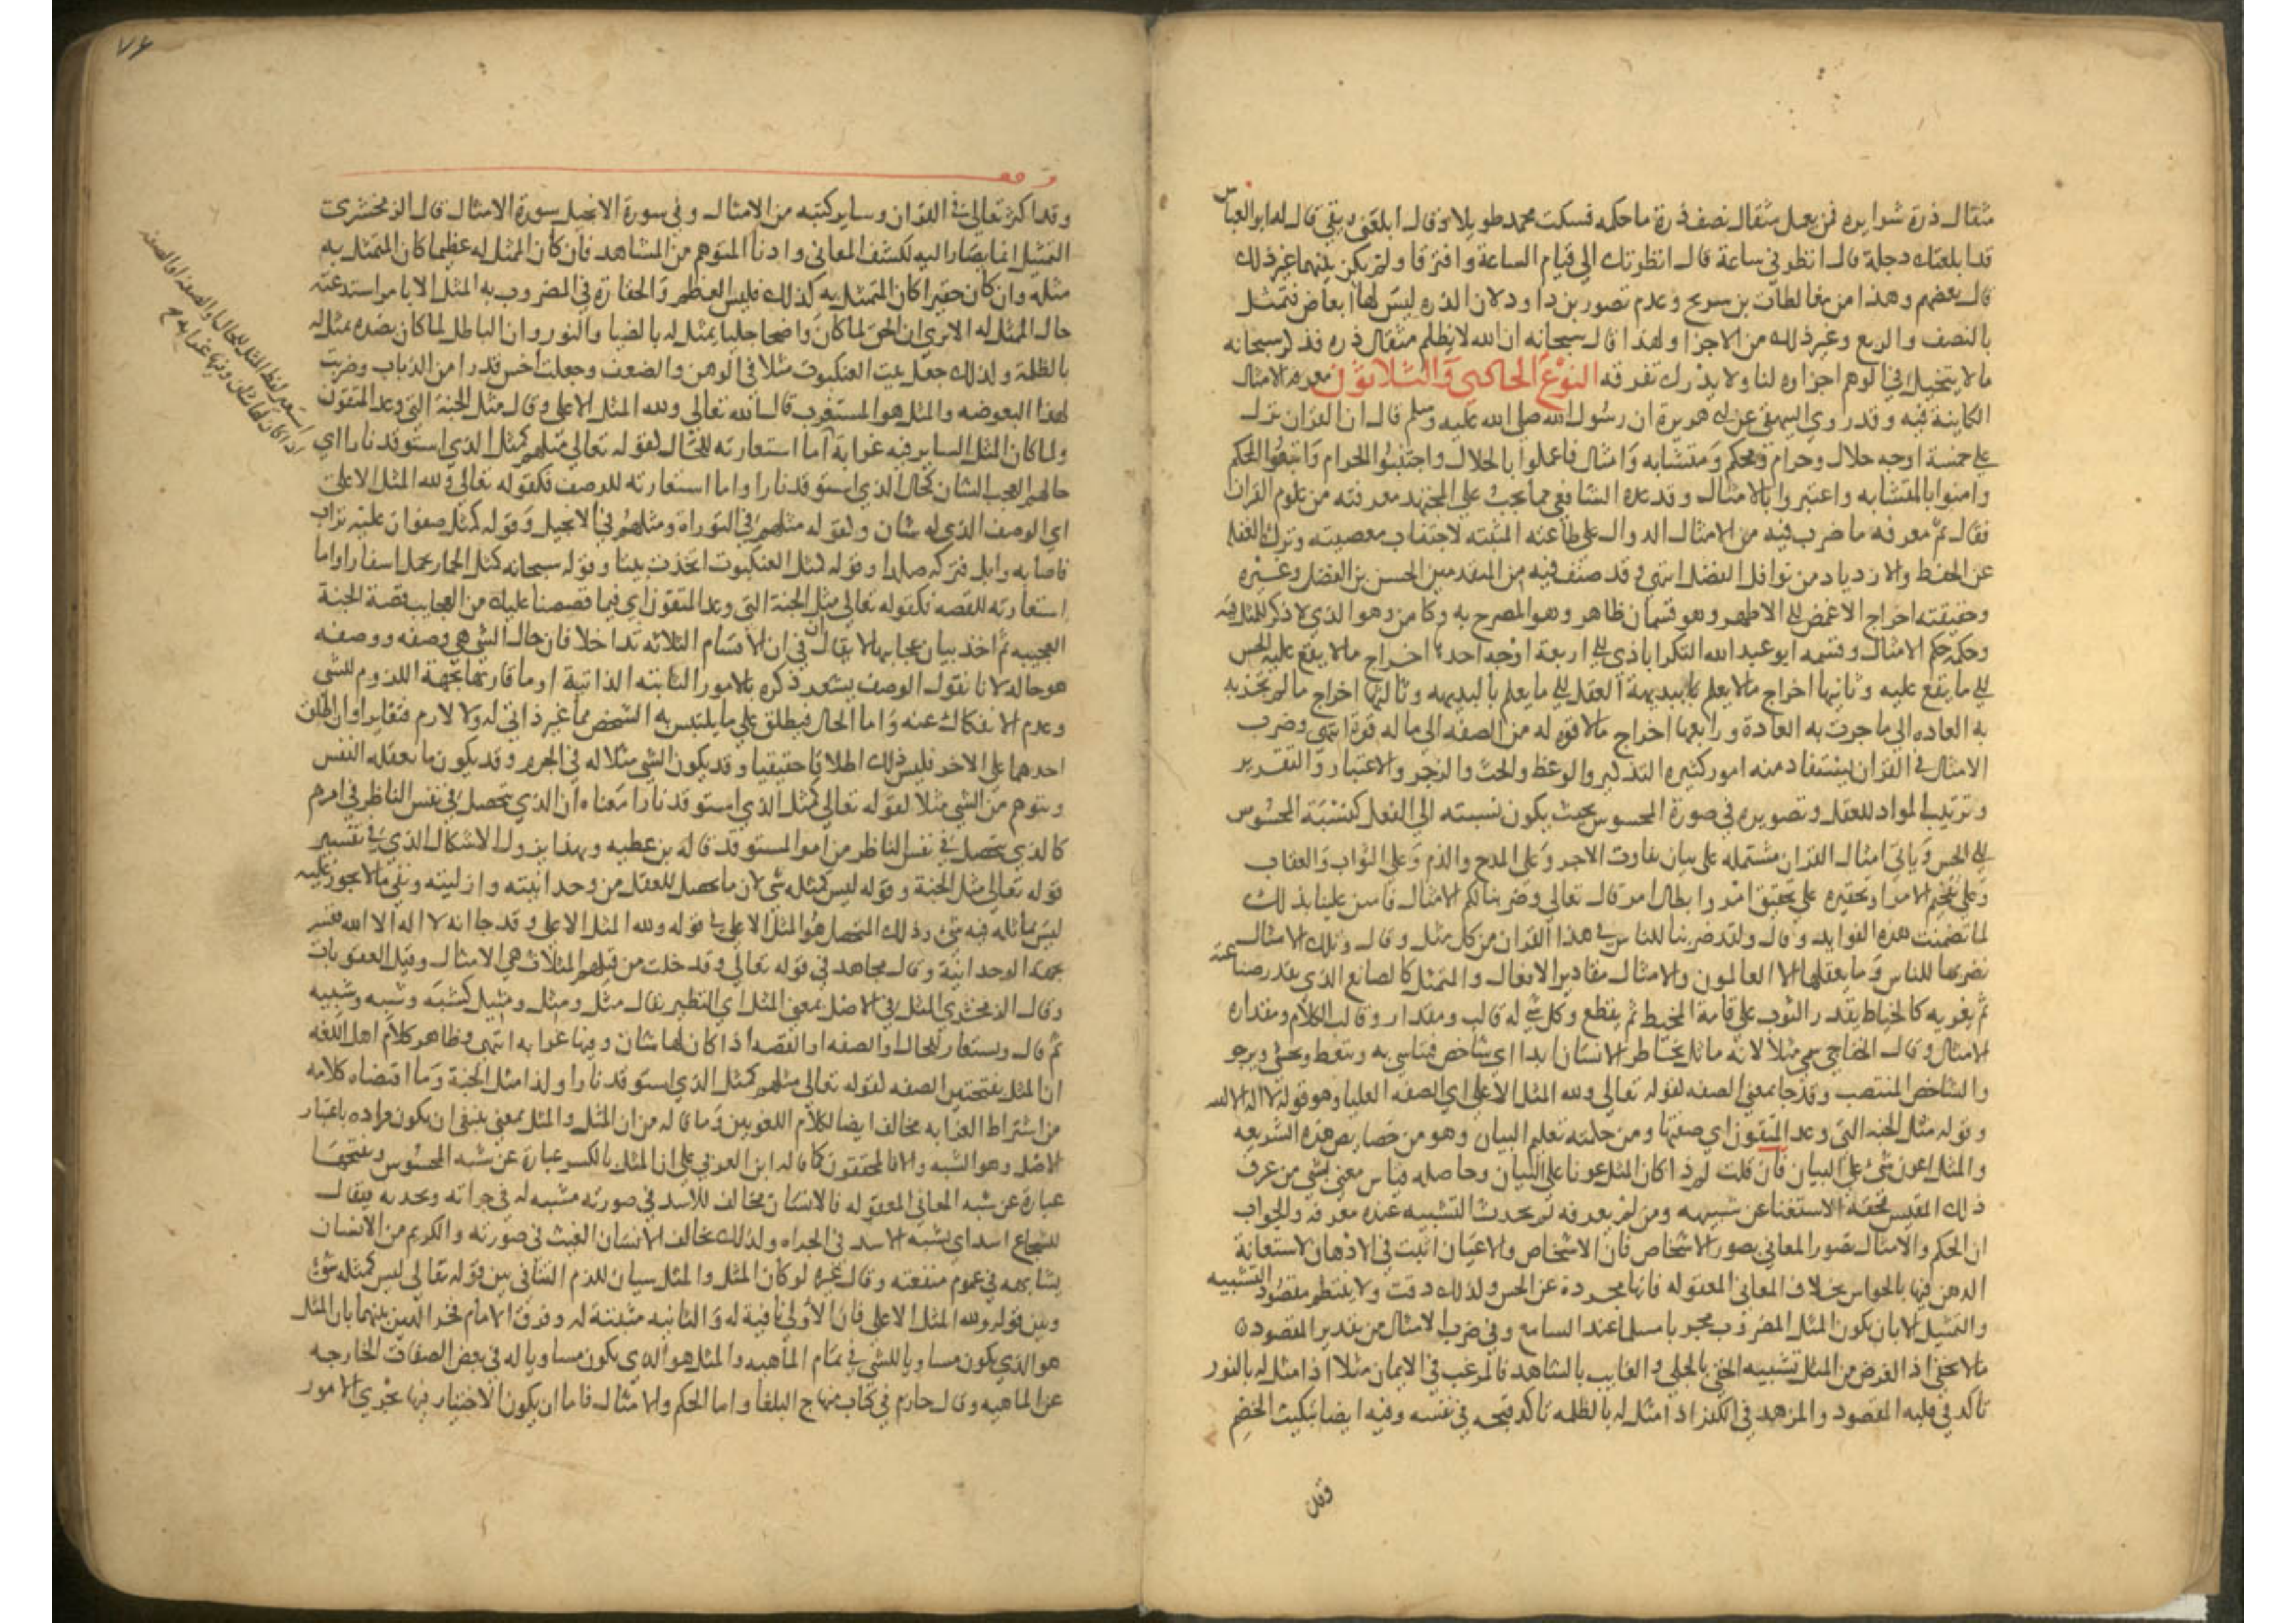 مثقال ذرة شرا يره فمن يعمل مثقال نصف ذرة ما حكمه فسكت محمد طويلا وقال ابلعني ريقي قال له ابو العباس
قد ابلعتك دجلة قال انظرني ساعة قال انظرتك الي قيام الساعة وافترقا ولم يكن بينهما غير ذلك
قال بعضهم وهذا من مغالطات بن سريج وعدم تصور بن داود لان الذره ليس لها ابعاض فتمثل
بالنصف والربع وغير ذلك من الاجزا ولهذا قال سبحانه ان الله لا يظلم مثقال ذره فذكر سبحانه
ما لا يتخيل في الوهم اجزاوه لنا ولا يدرك تفرقه النوع الحادي والثلاثون معرفه الامثال
الكاينة فيه وقد روي البيهقي عن ابي هريرة ان رسول الله صلي الله عليه وسلم قال ان القران نزل
علي خمسة اوجه حلال وحرام ومحكم ومتشابه وامثال فاعملوا بالحلال واجتنبوا الحرام واتبعوا المحكم
وامنوا بالمتشابه واعتبروا بالامثال وقد عده الشافعي مما يجب علي المجتهد معرفته من علوم القران
فقال ثم معرفه ما ضرب فيه من الامثال الدوال علي طاعته المثبته لاجتناب معصيته وترك الغفله
عن الحفظ والازدياد من نوافل الفضل انتهي وقد صنف فيه من المتقدمين الحسن بن الفضل وغيره
وحقيقته اخراج الاغمض الي الاظهر وهو قسمان ظاهر وهو المصرح به وكامن وهو الذي لا ذكر للمثل فيه
وحكمه حكم الامثال وقسمه ابو عبد الله البكراباذي الي اربعة اوجه احدها اخراج ما لا يقع عليه الحس
الي ما يقع عليه وثانيها اخراج ما لا يعلم ببديهة العقل الي ما يعلم بالبديهه وثالثها اخراج ما لم تجر به
به العاده الي ما جرت به العادة ورابعها اخراج ما لا قوه له من الصفه الي ما له قوة انتهي وضرب
الامثال في القران يستفاد منه امور كثيره التذكير والوعظ والحث والزجر والاعتبار والتقرير
وترتيب المواد للعقل وتصويره في صورة المحسوس بحيث يكون نسبته الي الفعل كنسبة المحسوس
الي الحس وياتي امثال القران مشتمله علي بيان تفاوت الاجر وعلي المدح والذم وعلي الثواب والعقاب
وعلي تفخيم الامر او تحقيره علي تحقيق امر وابطال امر قال تعالي وضربنا لكم الامثال فامتن علينا بذلك
لما تضمنت هذه الفوايد وقال ولقد ضربنا للناس في هذا القران من كل مثل وقال وتلك الامثال
نضربها للناس وما يعقلها الا العالمون والامثال مقادير الافعال والتمثل كالصانع الذي يقدر صناعته
ثم يفريه كالخياط يقدر الثوب علي قامة المخيط ثم يقطع وكل شي له قالب ومقدار وقالب الكلام ومقداره
الامثال وقال الخفاجي سمي مثلا لانه ماثل بخاطر الانسان ابدا اي شاخص فيتاسي به ويتعظ ويخشي ويرجو
والشاخص المنتصب وقد جا بمعني الصفه لقوله تعالي ولله المثل الاعلي اي الصفه العليا وهو قوله لا اله الا الله
وقوله مثل الجنه التي وعد المتقون اي صفتها ومن حكمته تعليم البيان وهو من خصايص هذه الشريعه
والمثل اعون شي علي البيان فان قلت لم ذا كان المثل عونا علي البيان وحاصله قياس معني بشي من عرف
ذلك المقيس فحقه الاستغنا عن شبيهه ومن لم يعرفه لم يحدث التشبيه عنده معرفه والجواب
ان الحكم والامثال تصور المعاني بصور الاشخاص فان الاشخاص والاعيان اثبت في الاذهان لاستعانة
الذهن فيها بالحواس بخلاف المعاني المعقوله فانها مجردة عن الحس ولذلك دقت ولا ينتظم مقصود التشبيه
والتمثيل الا بان يكون المثل المضروب مجربا مسلما عند السامع وفي ضرب الامثال من تقدير المقصود
ما لا يخفي اذ الغرض من المثل تشبيه الخفي بالجلي والغايب بالشاهد فالمرغب في الايمان مثلا اذا مثل له بالنور
تاكد في قلبه المقصود والمزهد في الكفر اذا مثل له بالظلمه تاكد قبحه في نفسه وفيه ايضا تبكيت الخصم
وقد
٧٤
وقد اكثر تعالي في القران وساير كتبه من الامثال وفي سورة الانجيل سورة الامثال قال الزمخشري
التمثيل انما يصار اليه لكشف المعاني وادنا المتوهم من المشاهد فان كان الممثل له عظيما كان المتمثل به
مثله وان كان حقيرا كان المتمثل به كذلك فليس العظم والحقارة في المضروب به المثل الا بامر استدعته
حال الممثل له الا تري ان الحق لما كان واضحا جليا يمثل له بالضيا والنور وان الباطل لما كان بضده تمثل له
بالظلمة ولذلك جعل بيت العنكبوت مثلا في الوهن والضعف وجعلت اخس قدرا من الذباب وضربت
لهذا البعوضه والمثل هو المستغرب قال الله تعالي ولله المثل الاعلي وقال مثل الجنة التي وعد المتقون
ولما كان المثل الساير فيه غرابة اما استعارته للحال لقوله تعالي مثلهم كمثل الذي استوقد نارا اي
حالهم العجب الشان كحال الذي استوقد نارا واما استعارته للوصف فكقوله تعالي ولله المثل الاعلي
اي الوصف الذي له شان ولقوله مثلهم في التوراة ومثلهم في الانجيل وقوله كمثل صفوان عليه تراب
فاصابه وابل فتركه صلدا وقوله كمثل العنكبوت اتخذت بيتا وقوله سبحانه كمثل الحمار يحمل اسفارا واما
استعارته للقصه فكقوله تعالي مثل الجنة التي وعد المتقون اي فيما قصصنا عليك من العجايب قصة الجنة
العجيبه ثم اخذ بيان عجايبها لا يقال ان في ان الاقسام الثلاثه تداخلا فان حال الشي هي وصفه ووصفه
هو حاله لانا نقول الوصف يشعر ذكره بالامور الثابته الذاتية او ما قاربها بجهة اللزوم للشي
وعدم الانفكاك عنه واما الحال فيطلق علي ما يلتبس به الشخص مما غير ذاتي له ولا لازم فتغايرا وان اطلق
احدهما علي الاخر فليس ذلك اطلاقا حقيقيا وقد يكون الشي مثلا له في الجرم وقد يكون ما تعقله النفس
ويتوهم من الشي مثلا لقوله تعالي كمثل الذي استوقد نارا معناه ان الذي يتحصل في نفس الناظر في امرهم
كالذي يتحصل في نفس الناظر من امر المستوقد قاله بن عطيه وبهذا يزول الاشكال الذي في تفسير
قوله تعالي مثل الجنة وقوله ليس كمثله شي لان ما يحصل للعقل من وحدانيته وازليته ونفي ما لا يجوز عليه
ليس يماثله فيه شي وذلك المتحصل هو المثل الاعلي في قوله ولله المثل الاعلي وقد جا انه لا اله الا الله ففسر
بجهة الوحدانية وقال مجاهد في قوله تعالي وقد خلت من قبلهم المثلات هي الامثال وقيل العقوبات
وقال الزمخشري المثل في الاصل بمعني المثل اي النظير يقال مثل ومثل ومثيل كشبه وشبه وشبيه
ثم قال ويستعار للحال او الصفه او القصه اذا كان لها شان وفيها غرابه انتهي وظاهر كلام اهل اللغه
ان المثل بفتحتين الصفه لقوله تعالي مثلهم كمثل الذي استوقد نارا ولذا مثل الجنة وما اقتضاه كلامه
من اشتراط الغرابه مخالف ايضا لكلام اللغويين وما قاله من ان المثل والمثل بمعني ينبغي ان يكون مراده باعتبار
الاصل وهو الشبه والا فالمحققون كما قاله ابن العربي علي ان المثل بالكسر عبارة عن شبه المحسوس وبفتحها
عبارة عن شبه المعاني المعقوله فالانسان مخالف للاسد في صورته مشبه له في جراته وحدته فيقال
للشجاع اسد اي يشبه الاسد في الجراه ولذلك يخالف الانسان الغيث في صورته والكريم من الانسان
يشابهه في عموم منفعته وقال غيره لو كان المثل والمثل سيان للزم التنافي بين قوله تعالي ليس كمثله شي
وبين قوله ولله المثل الاعلي فان الاولي نافية له والثانيه مثبتة له وفرق الامام فخر الدين بينهما بان المثل
هو الذي يكون مساويا للشي في تمام الماهيه والمثل هو الذي يكون مساويا له في بعض الصفات الخارجه
عن الماهيه وقال حازم في كتاب منهاج البلغا واما الحكم والامثال فاما ان يكون الاختيار فيها بجري الامور
استعير لفظ المثل للحال او الصفه او القصه
اذا كان لها شان وفيها غرابه